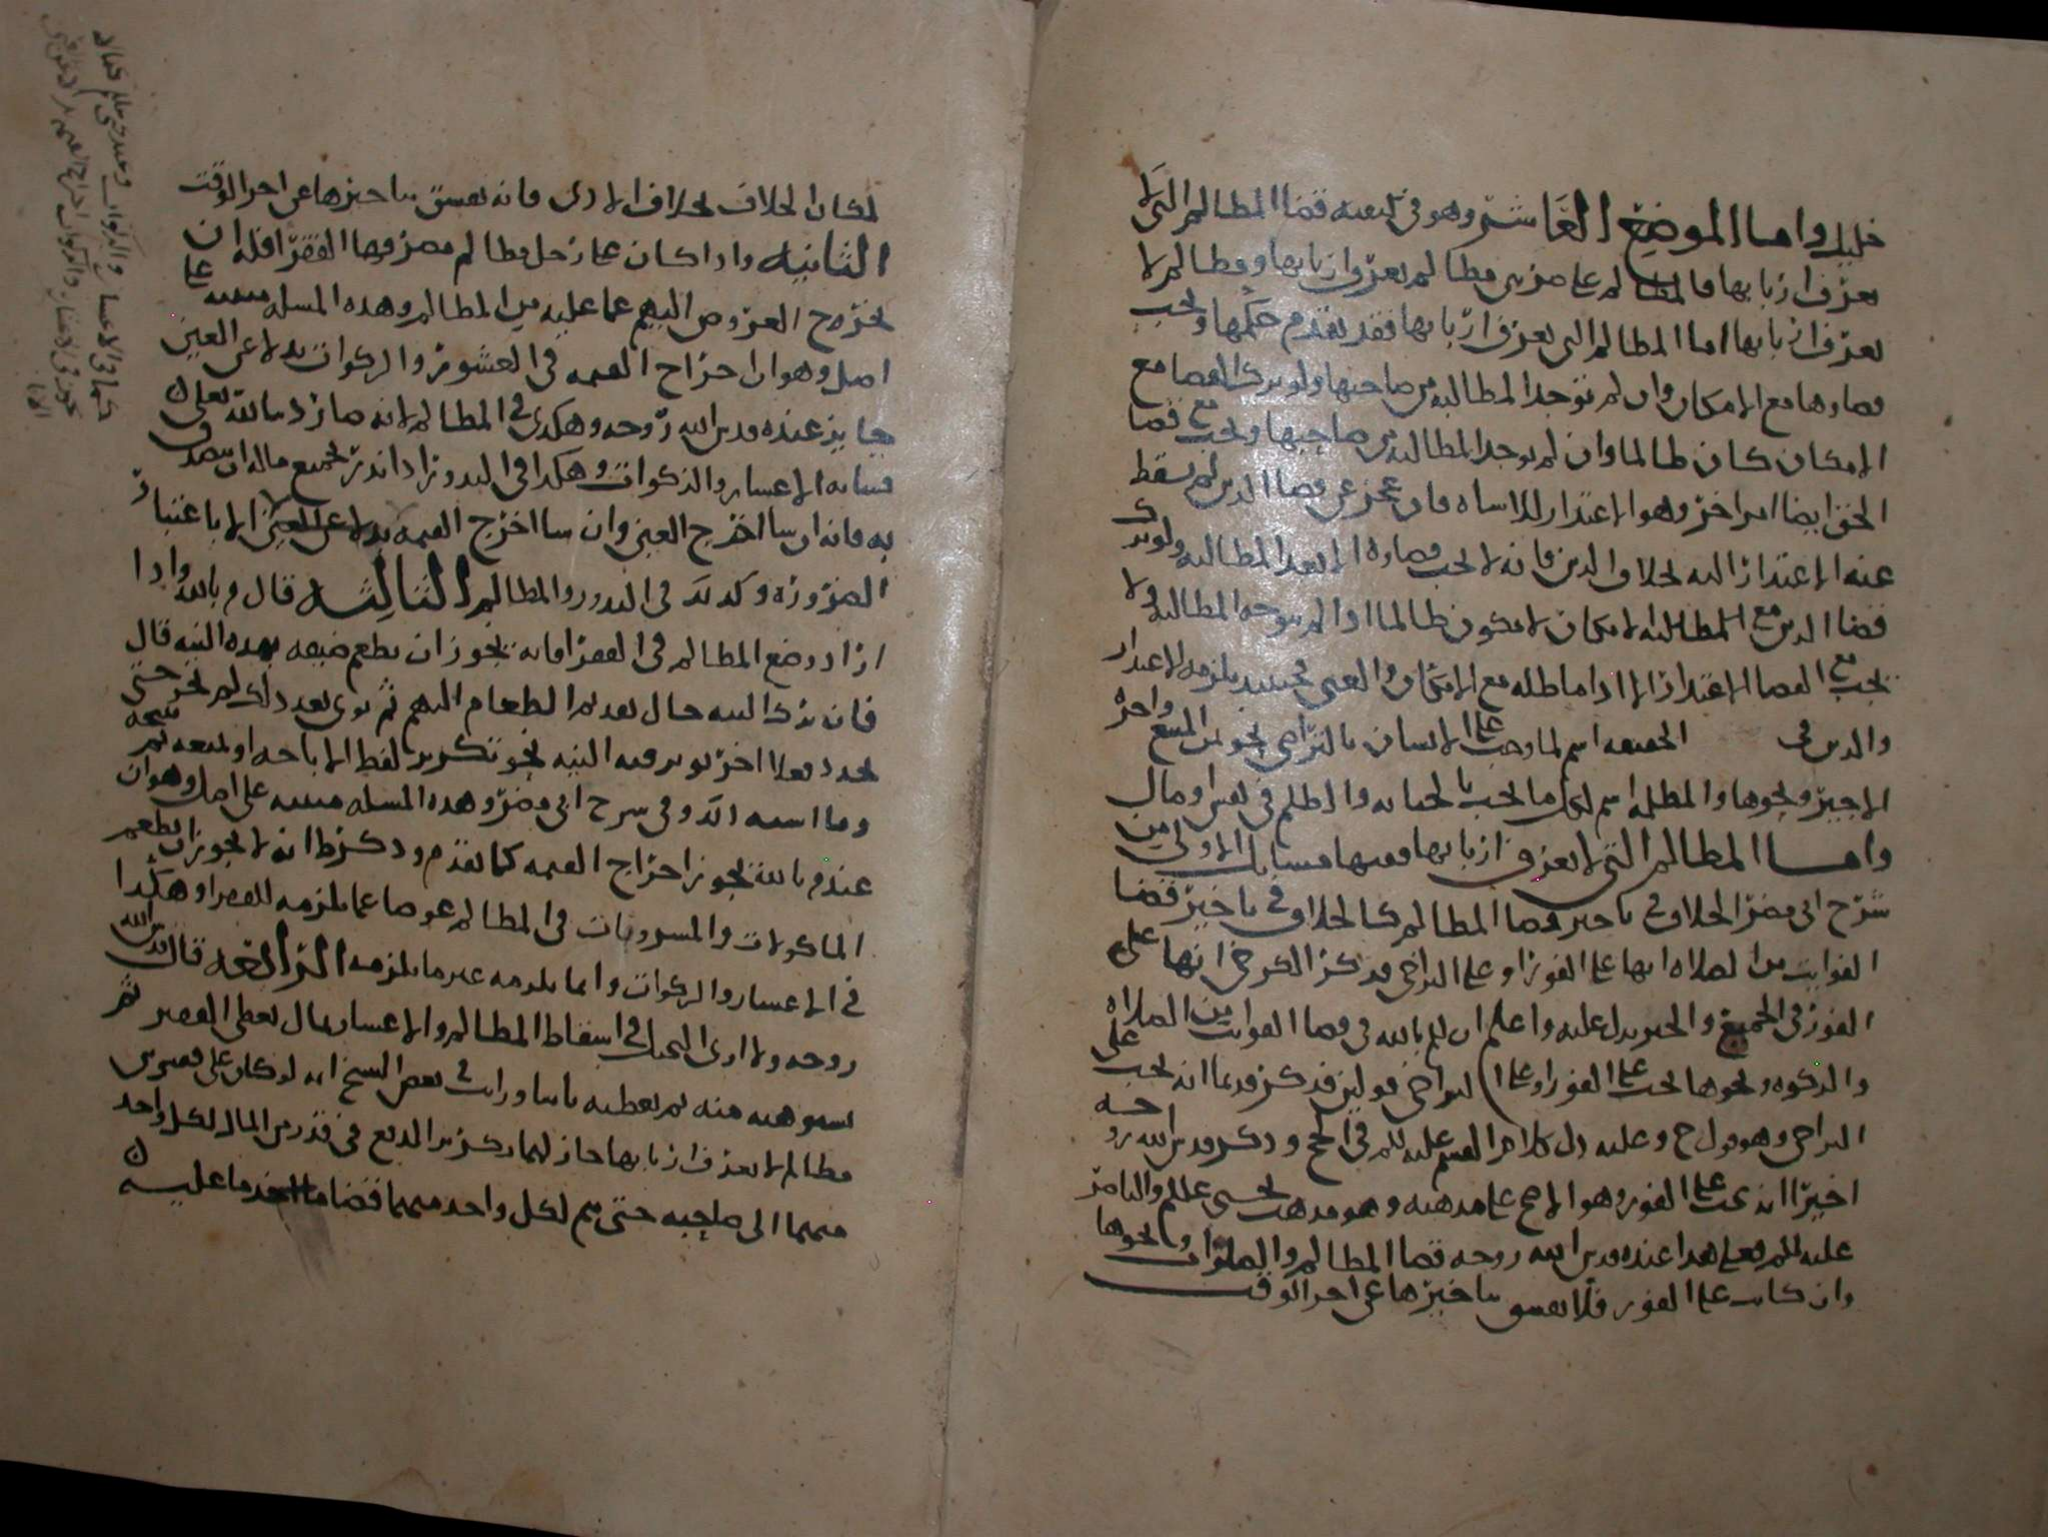 خليل واما الموضع العاشر وهو في كيفيه قضا المظالم التي لا
يعرف اربابها فالمظالم على ضربين مظالم يعرف اربابها ومظالم لا
يعرف اربابها اما المظالم التي يعرف اربابها فقد تقدم حكمها ويجب
قضاوها مع الامكان وان لم توجد المطالبه من صاحبها ولو ترك القضا مع
الامكان كان ظالما وان لم توجد المطالبه من صاحبها ويجب مع قضا
الحق ايضا امر اخر وهو الاعتذار للاساه فان عجز عن قضا الدين لم يسقط
عنه الاعتذار اليه بخلاف الدين فانه لا يجب قضاوه الا بعد المطالبه ولو ترك
قضا الدين مع المطالبه لامكان لا يكون ظالما اذا لم يتوجه المطالبه ولا
يجب مع القضا الاعتذار الا اذا ماطله مع الامكان والغنى فحينيذ يلزمه الاعتذار
والدين في الحقيقه اسم لما وجب على الانسان بالتراضي نحو ثمن المبيع واجره
الاجير ونحوها والمظلمه اسم لكل ما يجب بالجنايه والظلم في نفس او مال
واما المظالم التي لا يعرف اربابها ففيها مسايل الاولى من
شرح ابي مضر الخلاف في تاخير قضا المظالم كالخلاف في تاخير قضا
الفوايت من الصلاه انها على الفور او على التراخي فذكر الكرخي انها على
الفور في الجميع والخبر يدل عليه واعلم ان للم بالله في قضا الفوايت من الصلاه
والزكوه ونحوها يجب على الفور او على التراخي قولين فذكر قديما انه يجب على
التراخي وهو قول ح وعليه دل كلام القسم عليلم في الحج وذكر قدس الله روحه
اخيرا انه يجب على الفور وهو الاصح على مذهبه وهو مذهب يحيى عللم والناصر
عليه للم فعلى هذا عنده قدس الله روحه قضا المظالم والصلوات ونحوها
وان كانت على الفور فلا يفسق بتاخيرها عن اخر الوقت
لمكان الخلاف بخلاف الادى فانه يفسق بتاخيرها عن اخر الوقت
الثانيه واذا كان على رجل مظالم مصرفها الفقرا فله ان
يخرج العروض اليهم عما عليه من المظالم وهذه المسله مبنيه على
اصل وهو ان اخراج القيمه في العشور والزكوات بدلا عن العين
جايز عنده قدس الله روحه وهكذى في المظالم لانه صار لله تعالى
فشابه الاعشار والزكوات وهكذا في النذور اذا نذر بجميع ماله ان يتصدق
به فانه ان شا اخرج العين وان شا اخرج القيمه بدلا عن العين الا باعتبار
الضروره وكذلك في النذور والمظالم الثالثه قال م بالله واذا
اراد وضع المظالم في الفقرا فانه يجوز ان يطعم ضيعه بهذه النيه قال
فان ترك النيه حال تقديم الطعام اليهم ثم نوى بعد ذلك لم يجز حتى
يجدد فعلا اخر ينوي فيه النيه نحو تكرير لفظ الاباحه او يمنعه ثم يبيحه
وما اشبه ذلك وفي شرح ابي مضر وهذه المسله مبنيه على اصل وهو ان
عند م بالله يجوز اخراج القيمه كما تقدم وذكر ط انه لا يجوز ان يطعم
الماكولات والمشروبات في المظالم عوضا عما يلزمه للفقرا وهكذا
في الاعشار والزكوات وانما يلزمه عين ما يلزمه الرابعه قال قدس الله
روحه ولا ارى الحيل في اسقاط المظالم والاعشار بمال يعطى الفقير ثم
يستوهبه منه ثم يعطيه ثانيا ورايت في بعض النسخ انه لو كان على فقيرين
مظالم لا يعرف اربابها جاز لهما تكرير الدفع في قدر من المال لكل واحد
منهما الى صاحبه حتى يتم لكل واحد منهما قضا ما عليه